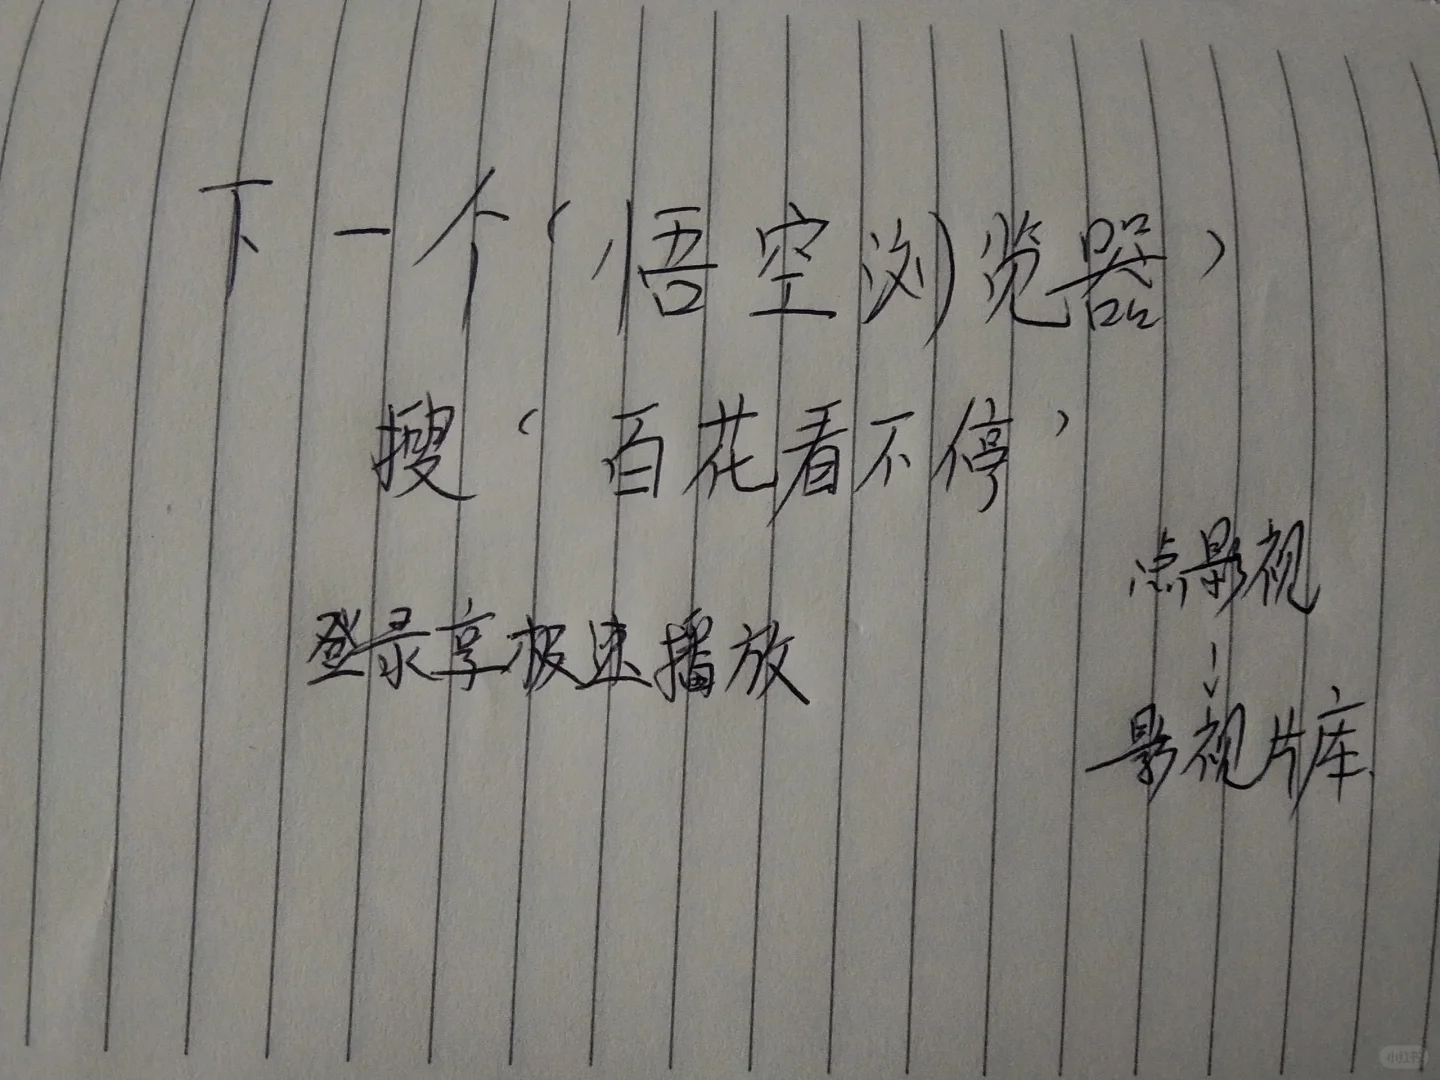 下一个‘悟空浏览器’
搜‘百花看不停’
点影视
登录享极速播放
影视片库
小红书